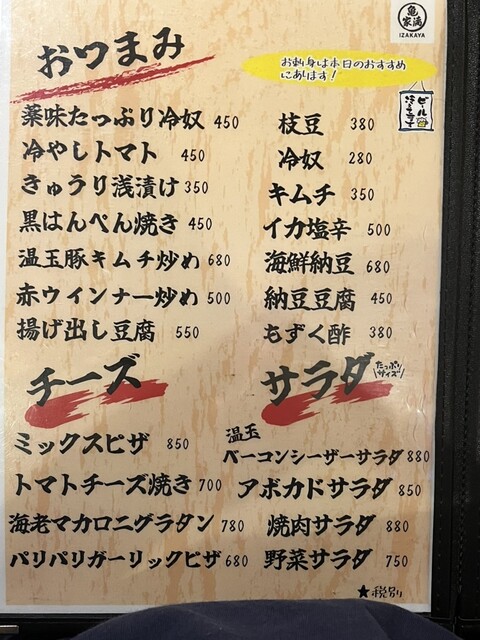 亀家満
IZAKAYA
おつまみ
お刺身は本日のおすすめ
にあります!
ビール
薬味たっぷり冷奴 450
冷やしトマト 450
きゅうり浅漬け 350
黒はんぺん焼き 450
温玉豚キムチ炒め 680
赤ウインナー炒め 500
揚げ出し豆腐 550
枝豆 380
冷奴 280
キムチ 350
イカ塩辛 500
海鮮納豆 680
納豆豆腐 450
もずく酢 380
チーズ
ミックスピザ 850
トマトチーズ焼き 700
海老マカロニグラタン 780
パリパリガーリックピザ 680
サラダ
たっぷり
サイズ
温玉
ベーコンシーザーサラダ 880
アボカドサラダ 850
焼肉サラダ 880
野菜サラダ 750
★税別